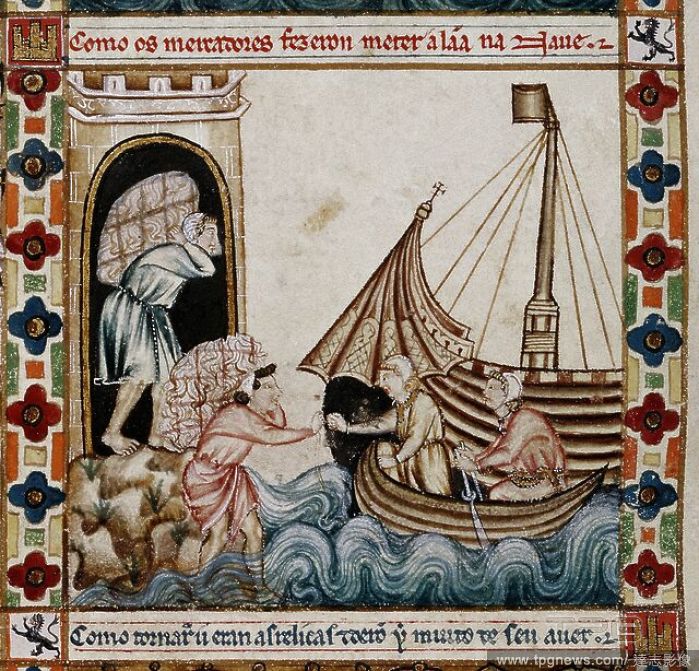 Como os mercadores fezeron meter a lãa na Naue.
Como tornarũ eran as relicas
de seu auer.
www.tpgnews.com/ 達志影像